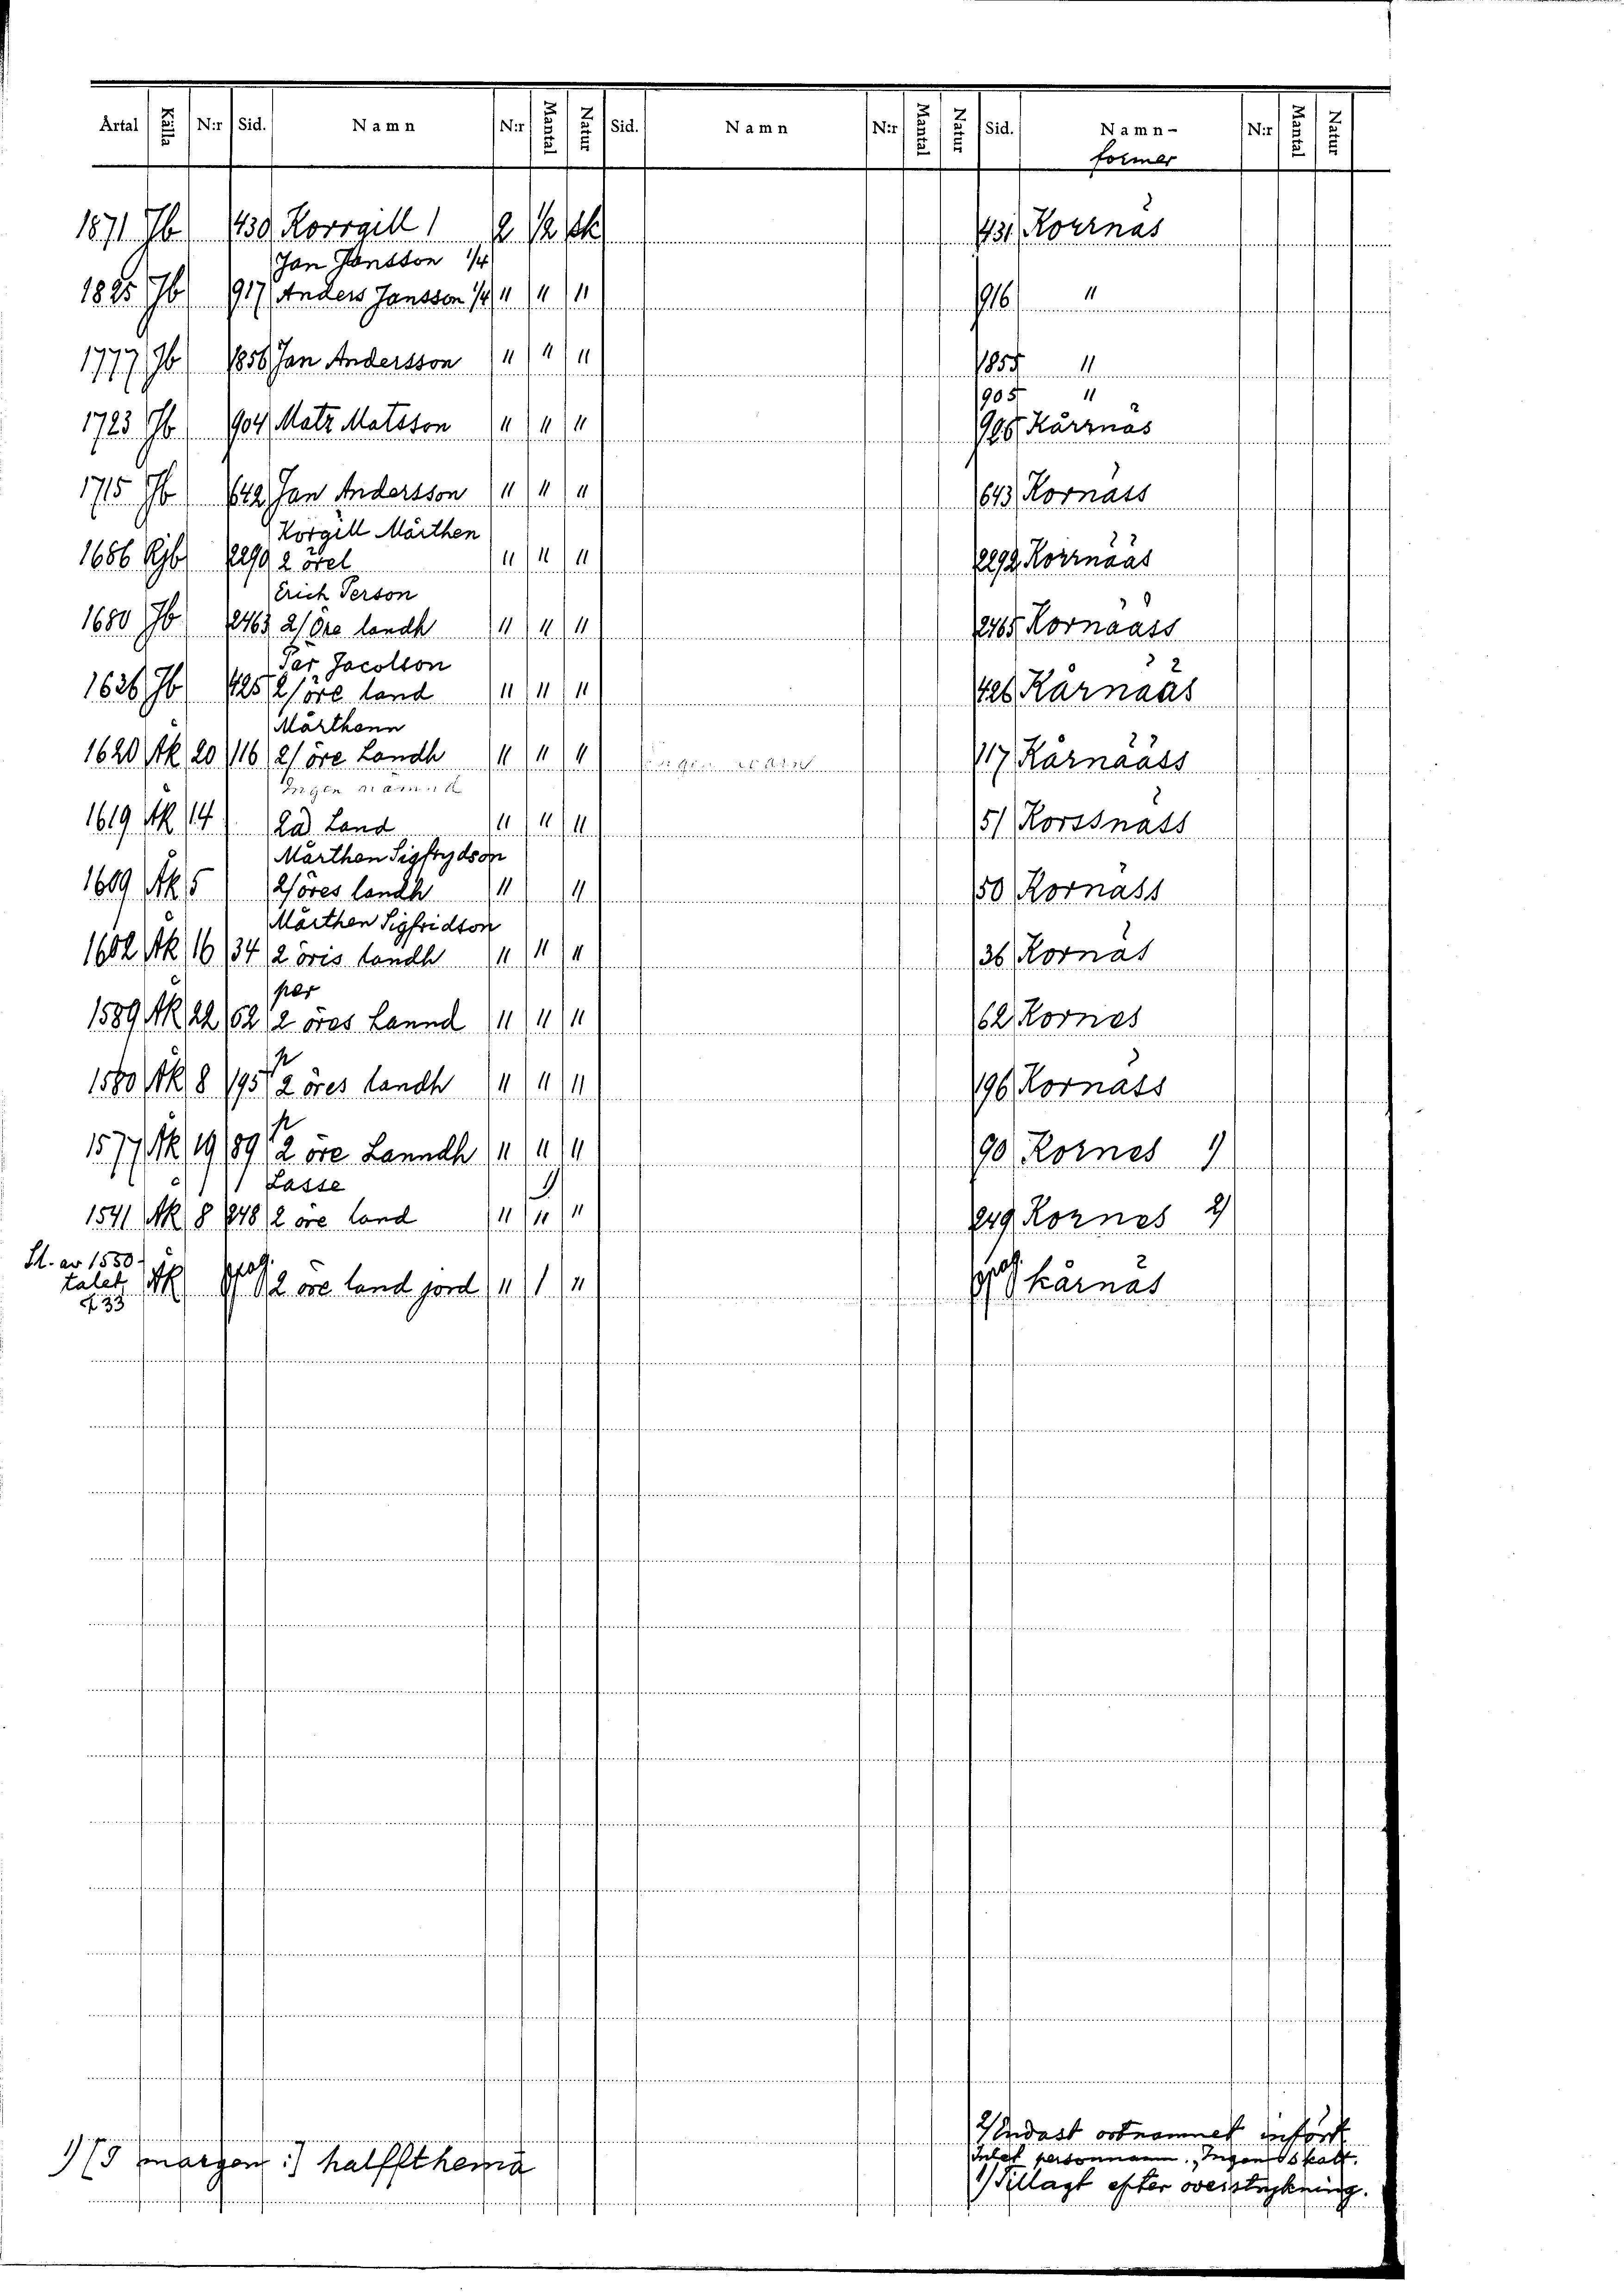 Årtal Källa N:r Sid. Namn N:r Mantal Natur Sid. Namn N:r Mantal Natur Sid. Namn- N:r Mantal Natur
former
1871 Jb 430 Korrgill 1 2 1/2 sk 431 Korrnäs
Jan Jansson 1/4
1825 Jb 917 Anders Jansson 1/4 " " " 916 "
1777 Jb 1856 Jan Andersson " " " 1855 "
905 "
1723 Jb 904 Matz Matsson " " " 906 Kårrnäs
1715 Jb 642 Jan Andersson " " " 643 Kornäss
Korgill Mårthen
1686 Rjb 2290 2 örel " " " 2292 Korrnääs
Erich Person
1680 Jb 2463 2/ Öre landh " " " 2465 Kornääss
Pär Jacobson
1626 Jb 425 2/ öre land " " " 426 Kårnääs
Mårthenn
1620 Åk 20 116 2/ öre Landh " " " 117 Kårnääss
Ingen nämnd
1619 Åk 14 2ad Land " " " 51 Korssnäss
Mårthen Sigfrydson
1609 Åk 5 2/ öres landh " " 50 Kornäss
Mårthen Sigfridson
1602 Åk 16 34 2 öris landh " " " 36 Kornäs
per
1589 Åk 22 62 2 öres Lannd " " " 62 Kornes
p
1580 Åk 8 195 2 öres landh " " " 196 Kornäss
p
1577 Åk 19 89 2 öre Lanndh " " " 90 Kornes 1)
Lasse 1)
1541 Åk 8 248 2 öre land " " " 249 Kornes 2)
Sl. av 1530-
talet Åk opag. 2 öre land jord " 1 " opag. kårnäs
F 33
2) Endast ortnamnet infört
Intet personnamn. Ingen skatt.
1) [I margen :] halffthema
1) Tillagt efter överstrykning.